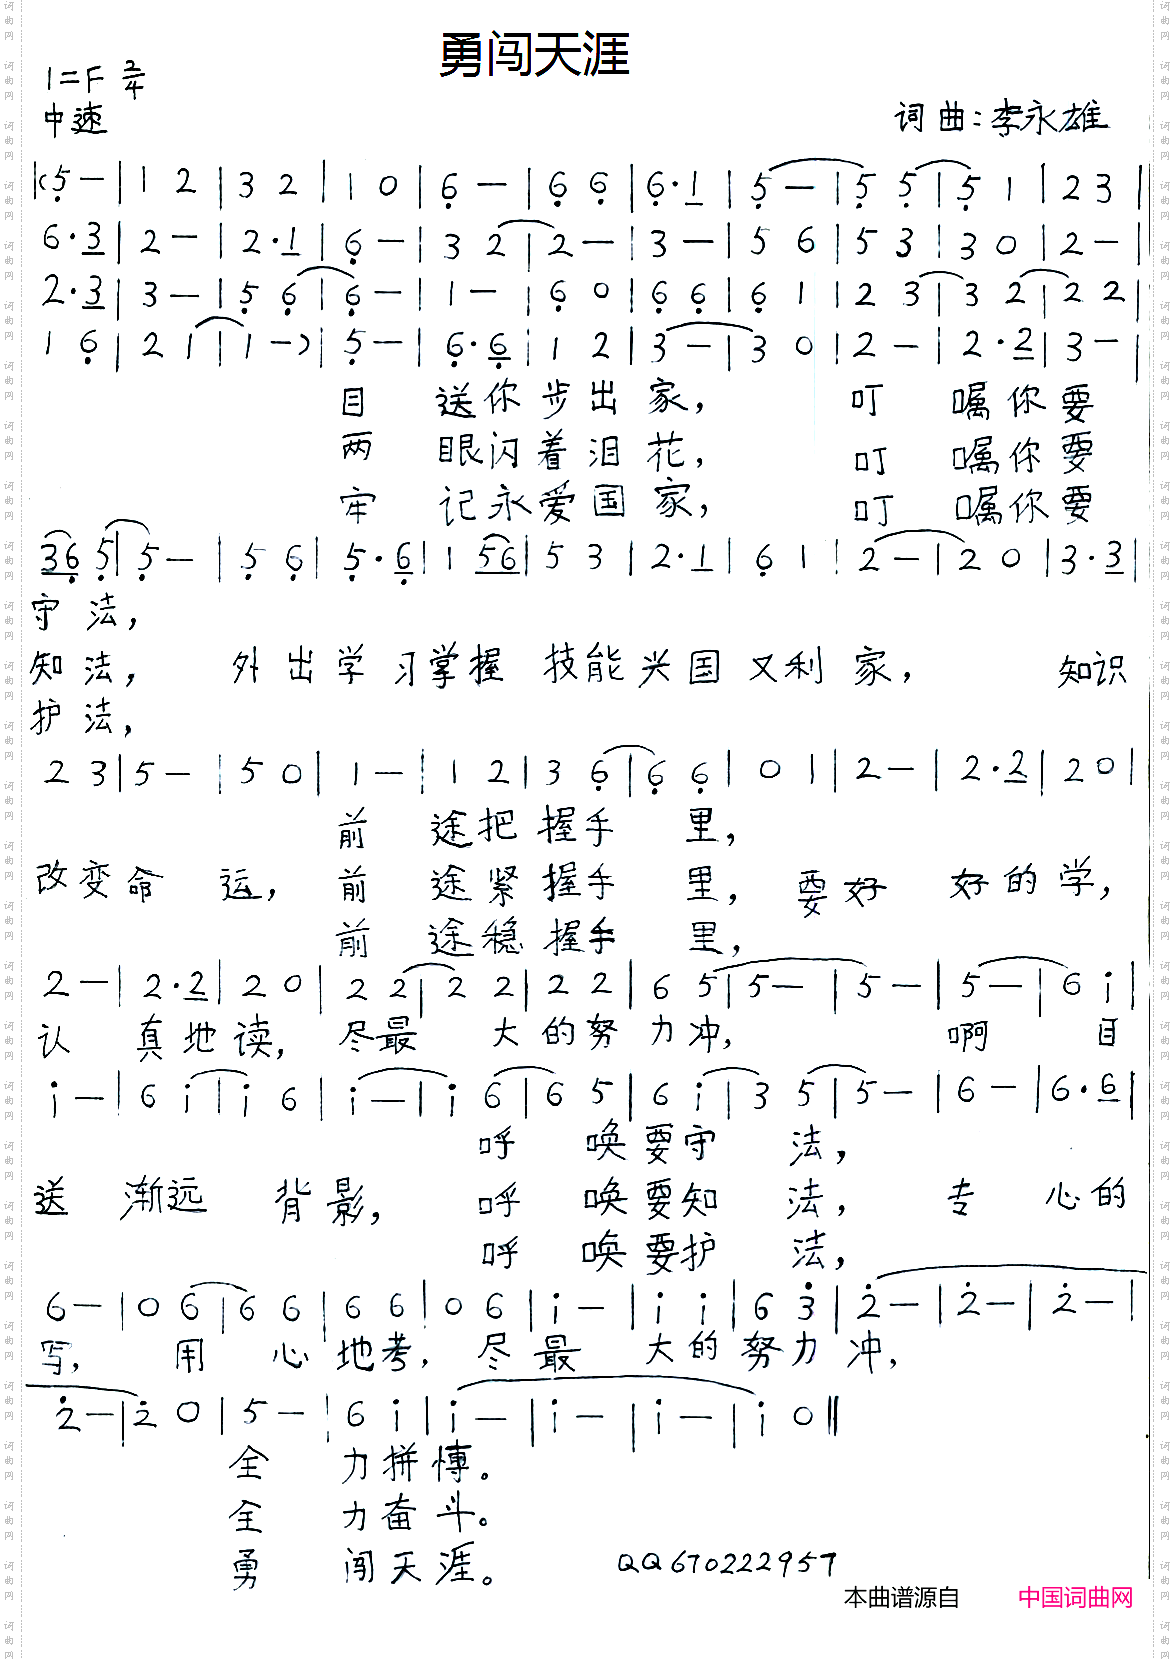 勇闯天涯
1=F 2/4
中速
词曲:李永雄
|(5 — | 1 2 | 3 2 | 1 0 | 6 — | 6 6 | 6·1 | 5 — | 5 5 | 5 1 | 2 3 |
6·3 | 2 — | 2·1 | 6 — | 3 2 | 2 — | 3 — | 5 6 | 5 3 | 3 0 | 2 — |
2·3 | 3 — | 5 6 | 6 — | 1 — | 6 0 | 6 6 | 6 1 | 2 3 | 3 2 | 2 2 |
1 6 | 2 1 | 1 —) | 5 — | 6·6 | 1 2 | 3 — | 3 0 | 2 — | 2·2 | 3 — |
目 送你步出家, 叮 嘱你要
两 眼闪着泪花, 叮 嘱你要
牢 记永爱国家, 叮 嘱你要
36 5 | 5 — | 5 6 | 5·6 | 1 56 | 5 3 | 2·1 | 6 1 | 2 — | 2 0 | 3·3 |
守法,
知法, 外出学习掌握技能兴国又利家, 知识
护法,
2 3 | 5 — | 5 0 | 1 — | 1 2 | 3 6 | 6 6 | 0 1 | 2 — | 2·2 | 2 0 |
前 途把握手 里,
改变命 运, 前 途紧握手 里, 要好 好的学,
前 途稳握手 里,
2 — | 2·2 | 2 0 | 2 2 | 2 2 | 2 2 | 6 5 | 5 — | 5 — | 5 — | 6 i |
认 真地读, 尽最 大的努力冲, 啊 目
i — | 6 i | i 6 | i — | i 6 | 6 5 | 6 i | 3 5 | 5 — | 6 — | 6·6 |
呼 唤要守 法,
送 渐远 背影, 呼 唤要知 法, 专 心的
呼 唤要护 法,
6 — | 0 6 | 6 6 | 6 6 | 0 6 | i — | i i | 6 3 | 2 — | 2 — | 2 — |
写, 用 心地考, 尽最 大的努力冲,
2 — | 2 0 | 5 — | 6 i | i — | i — | i — | i 0 ||
全 力拼慱。
全 力奋斗。
勇 闯天涯。
QQ670222957
本曲谱源自 中国词曲网